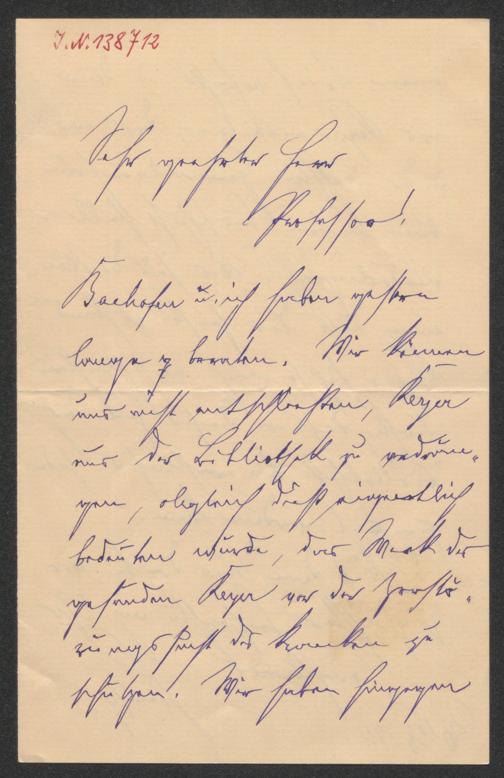 J.N. 138712
Sehr geehrter Herr
Professor!
Bachofen u. ich haben gestern
lange beraten. Wir können
uns nicht entschließen, Keyer
aus der Bibliothek zu verdrän-
gen, obgleich dieß eigentlich
bedeuten würde, das Werk des
gesunden Keyer vor der Zerstö-
rungssucht des kranken zu
schützen. Wir haben hingegen